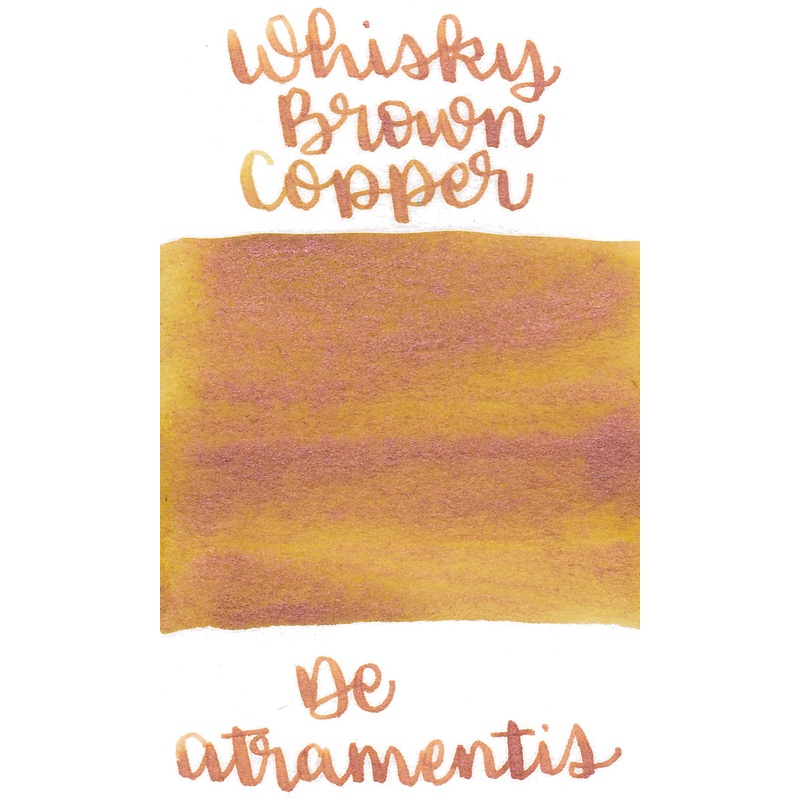 Whisky
Brown
Copper
De
atramentis